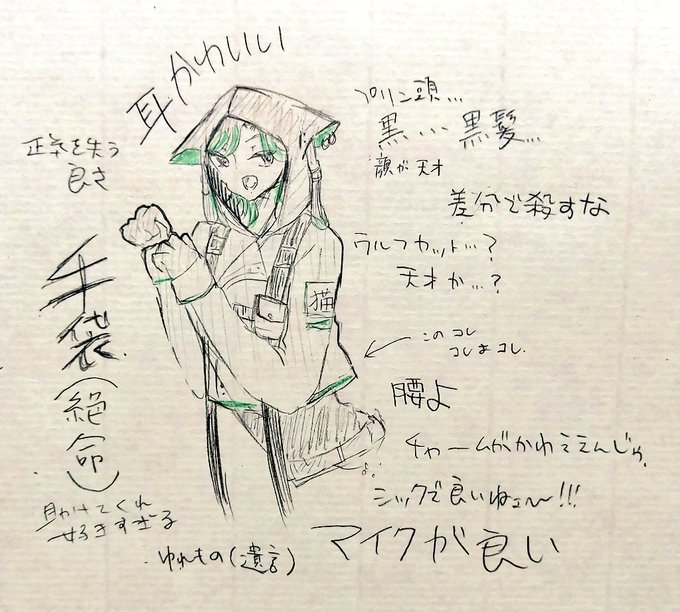 耳かわいい
正気を失う
良さ
手袋
(絶命)
助けてくれ
好きすぎる
ゆれもの(遺言)
猫
プリン頭…
黒…黒髪…
顔が天才
差分で殺すな
ウルフカット…?
天才か…?
このコレ
コレはコレ
腰よ
チャームがかわええんじゃ
シックで良いねェ〜!!!
マイクが良い